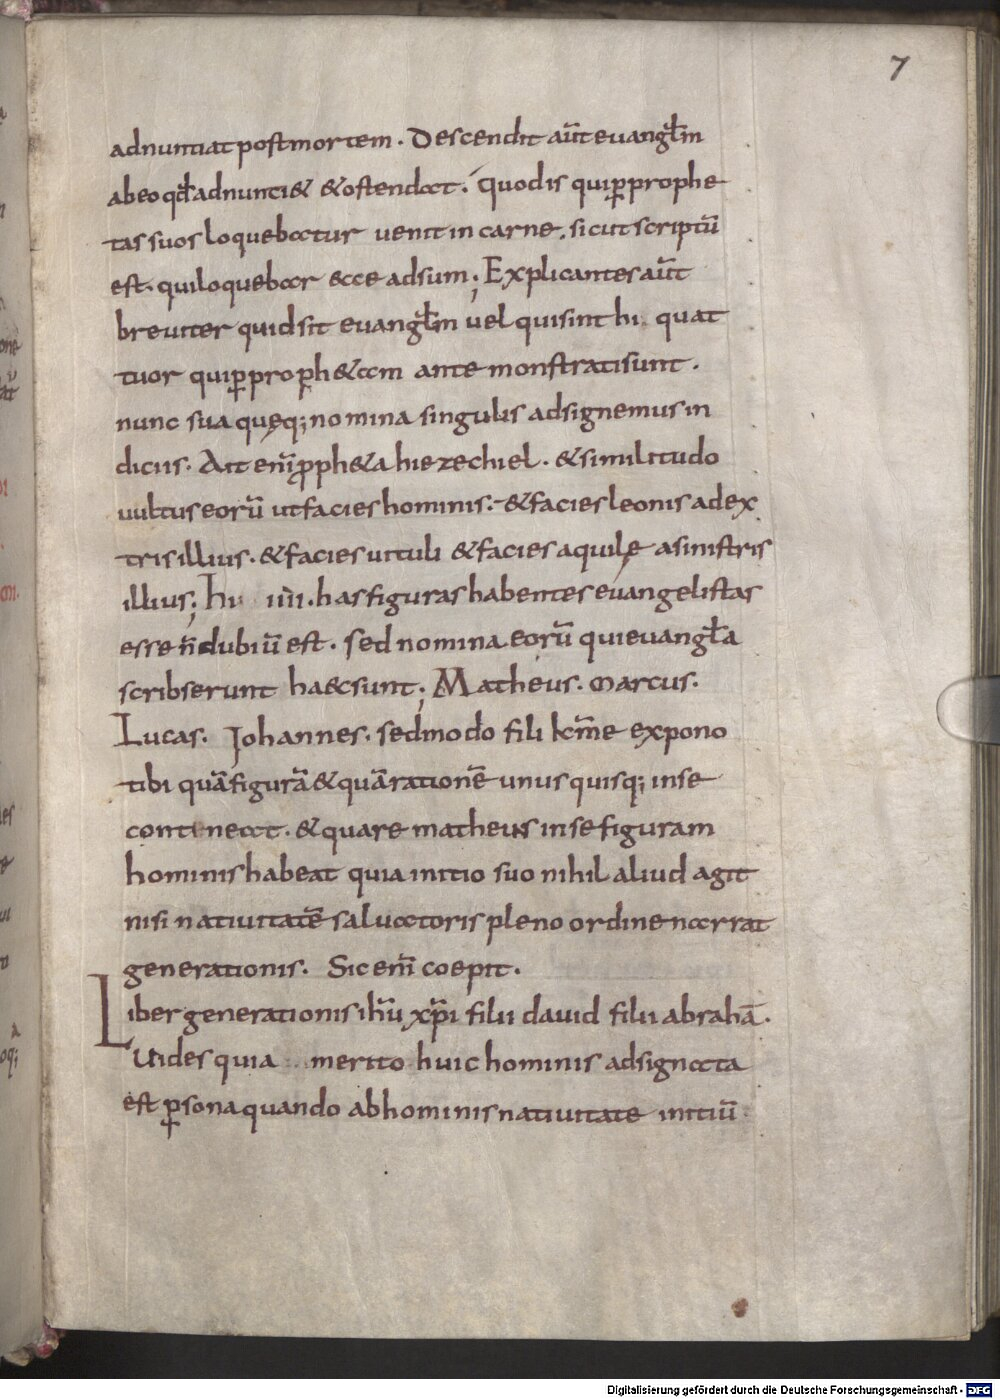 7
adnuntiat post mortem. Descendit aūt evangl̄m
ab eo qđ adnunti& & ostendat. Quod is qui ꝑ prophe
tas suos loquebatur venit in carne. sicut scriptū
est. qui loquebar ecce adsum; Explicantes aūt
breviter quid sit evangl̄m vel qui sint hi quat
tuor qui ꝑ proph&am ante monstrati sunt.
nunc sua quęq; nomina singulis adsignemus in
diciis. Ait eni̅ ꝓph&a hiezechiel. & similitudo
vultus eorū ut facies hominis. & facies leonis a dex
tris illius. & facies vituli & facies aquilę a sinistris
illius; hi iiii. has figuras habentes evangelistas
esse n̄ dubiū est. sed nomina eorū qui evangl̄a
scribserunt haec sunt; Matheus. Marcus.
Lucas. Johannes. sed modo fili kr̄me expono
tibi quā figurā & quā rationē unusquisq; in se
contineat. & quare matheus in se figuram
hominis habeat quia initio suo nihil aliud agit
nisi nativitatē salvatoris pleno ordine narrat
generationis. Sic eni̅ coepit.
Liber generationis ih̄u xp̄i filii david filii abrahā.
Vides quia merito huic hominis adsignata
est ꝑsona quando ab hominis nativitate initiū
Digitalisierung gefördert durch die Deutsche Forschungsgemeinschaft - DFG